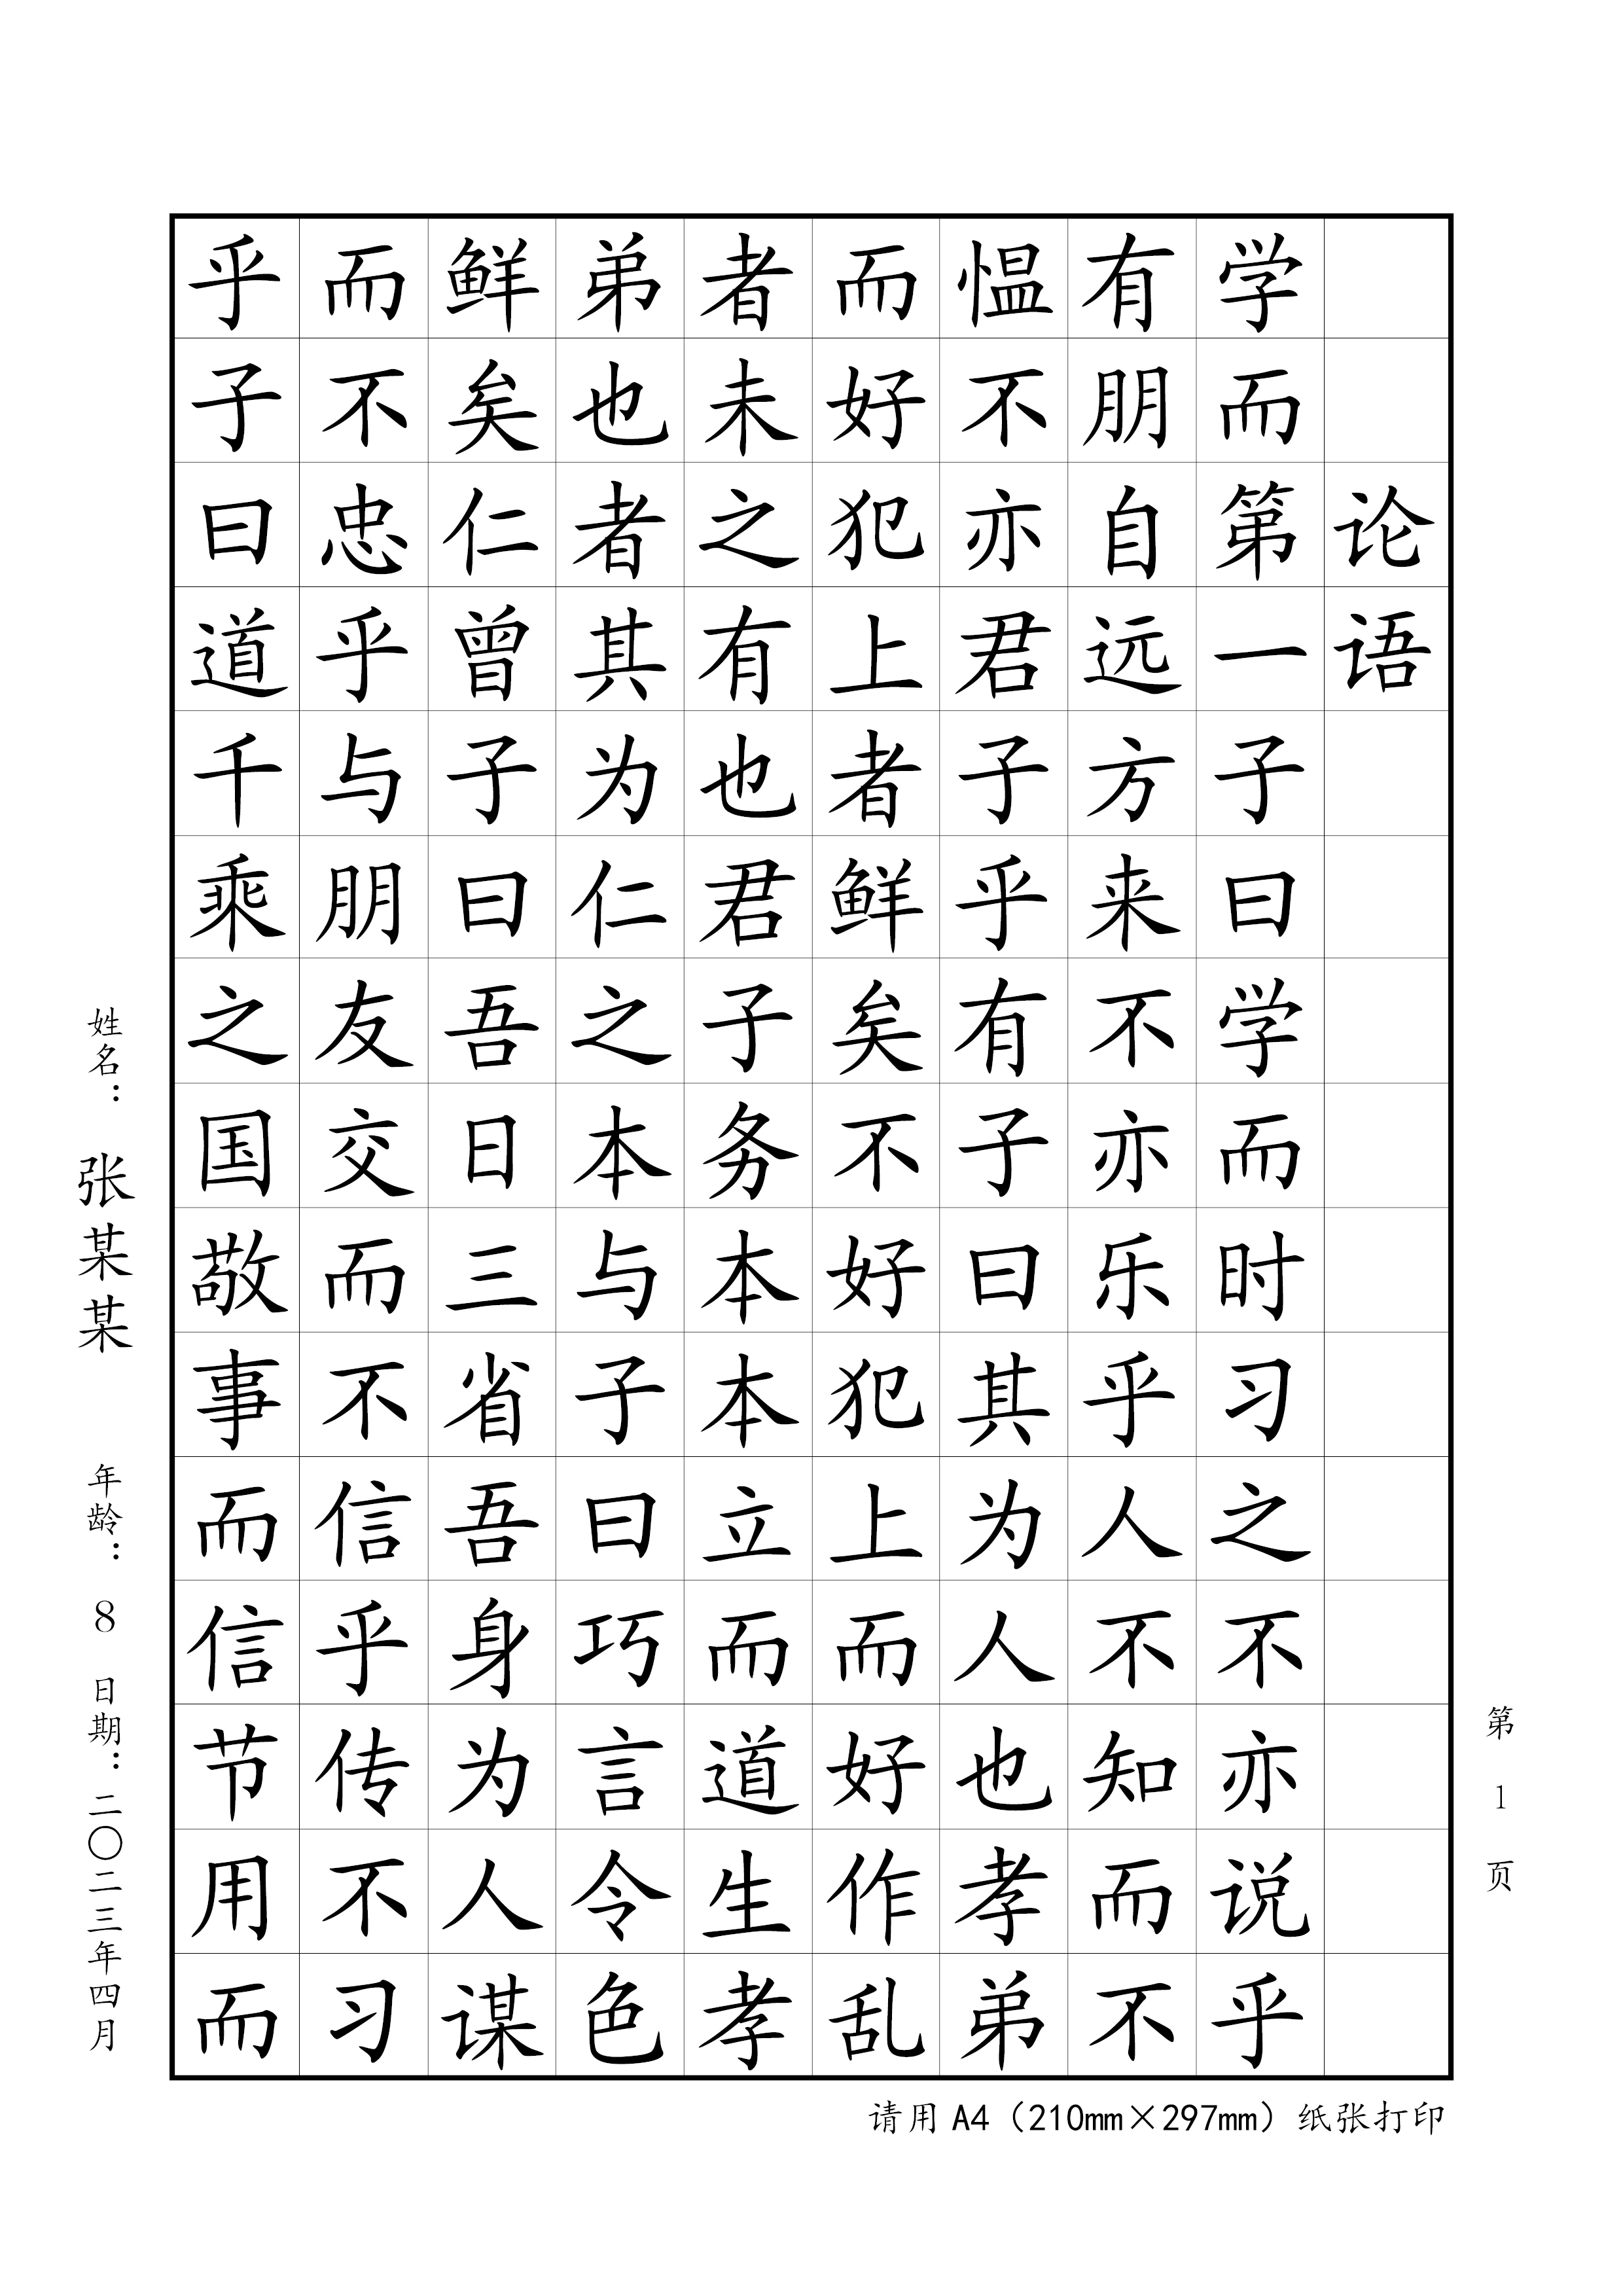 论语
学而第一子曰学而时习之不亦说乎
有朋自远方来不亦乐乎人不知而不
愠不亦君子乎有子曰其为人也孝弟
而好犯上者鲜矣不好犯上而好作乱
者未之有也君子务本本立而道生孝
弟也者其为仁之本与子曰巧言令色
鲜矣仁曾子曰吾日三省吾身为人谋
而不忠乎与朋友交而不信乎传不习
乎子曰道千乘之国敬事而信节用而
姓名：张某某 年龄：8 日期：二〇二三年四月
第1页
请用A4（210mm×297mm）纸张打印